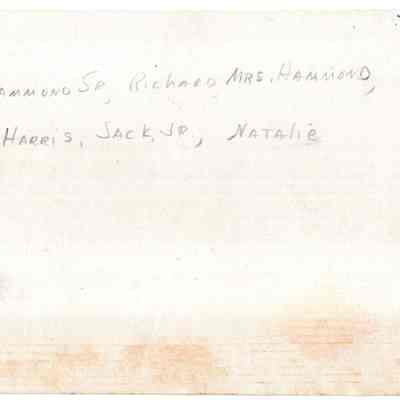 AMMOND SR, RICHARD MRS. HAMMOND,
HARRIS, JACK, JR., NATALIE